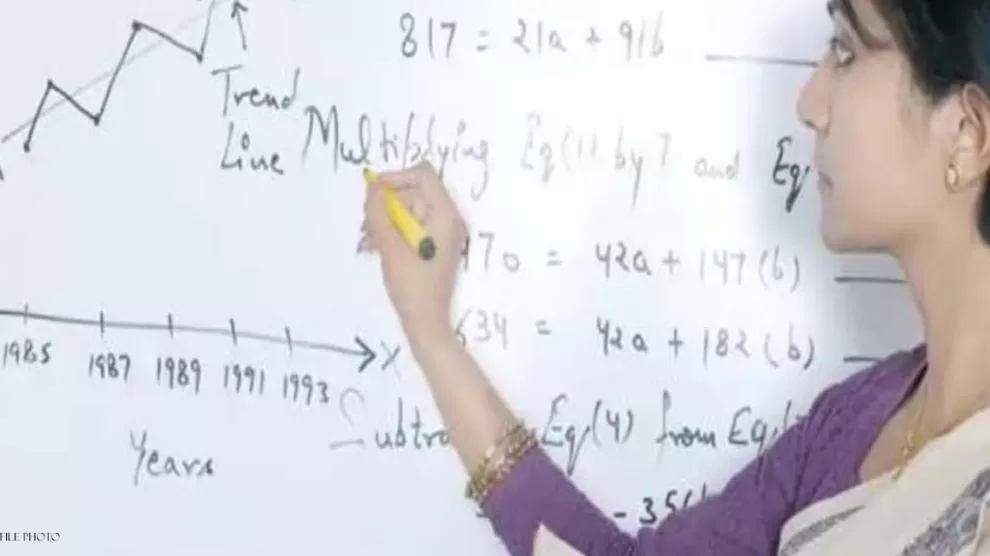 817 = 21a + 91b
Trend
Line
Multiplying Eq(1) by 7 and Eq
470 = 42a + 147(b)
634 = 42a + 182(b)
X
1985 1987 1989 1991 1993
Years
Subtra Eq(4) from Eq(
- 35(
FILE PHOTO